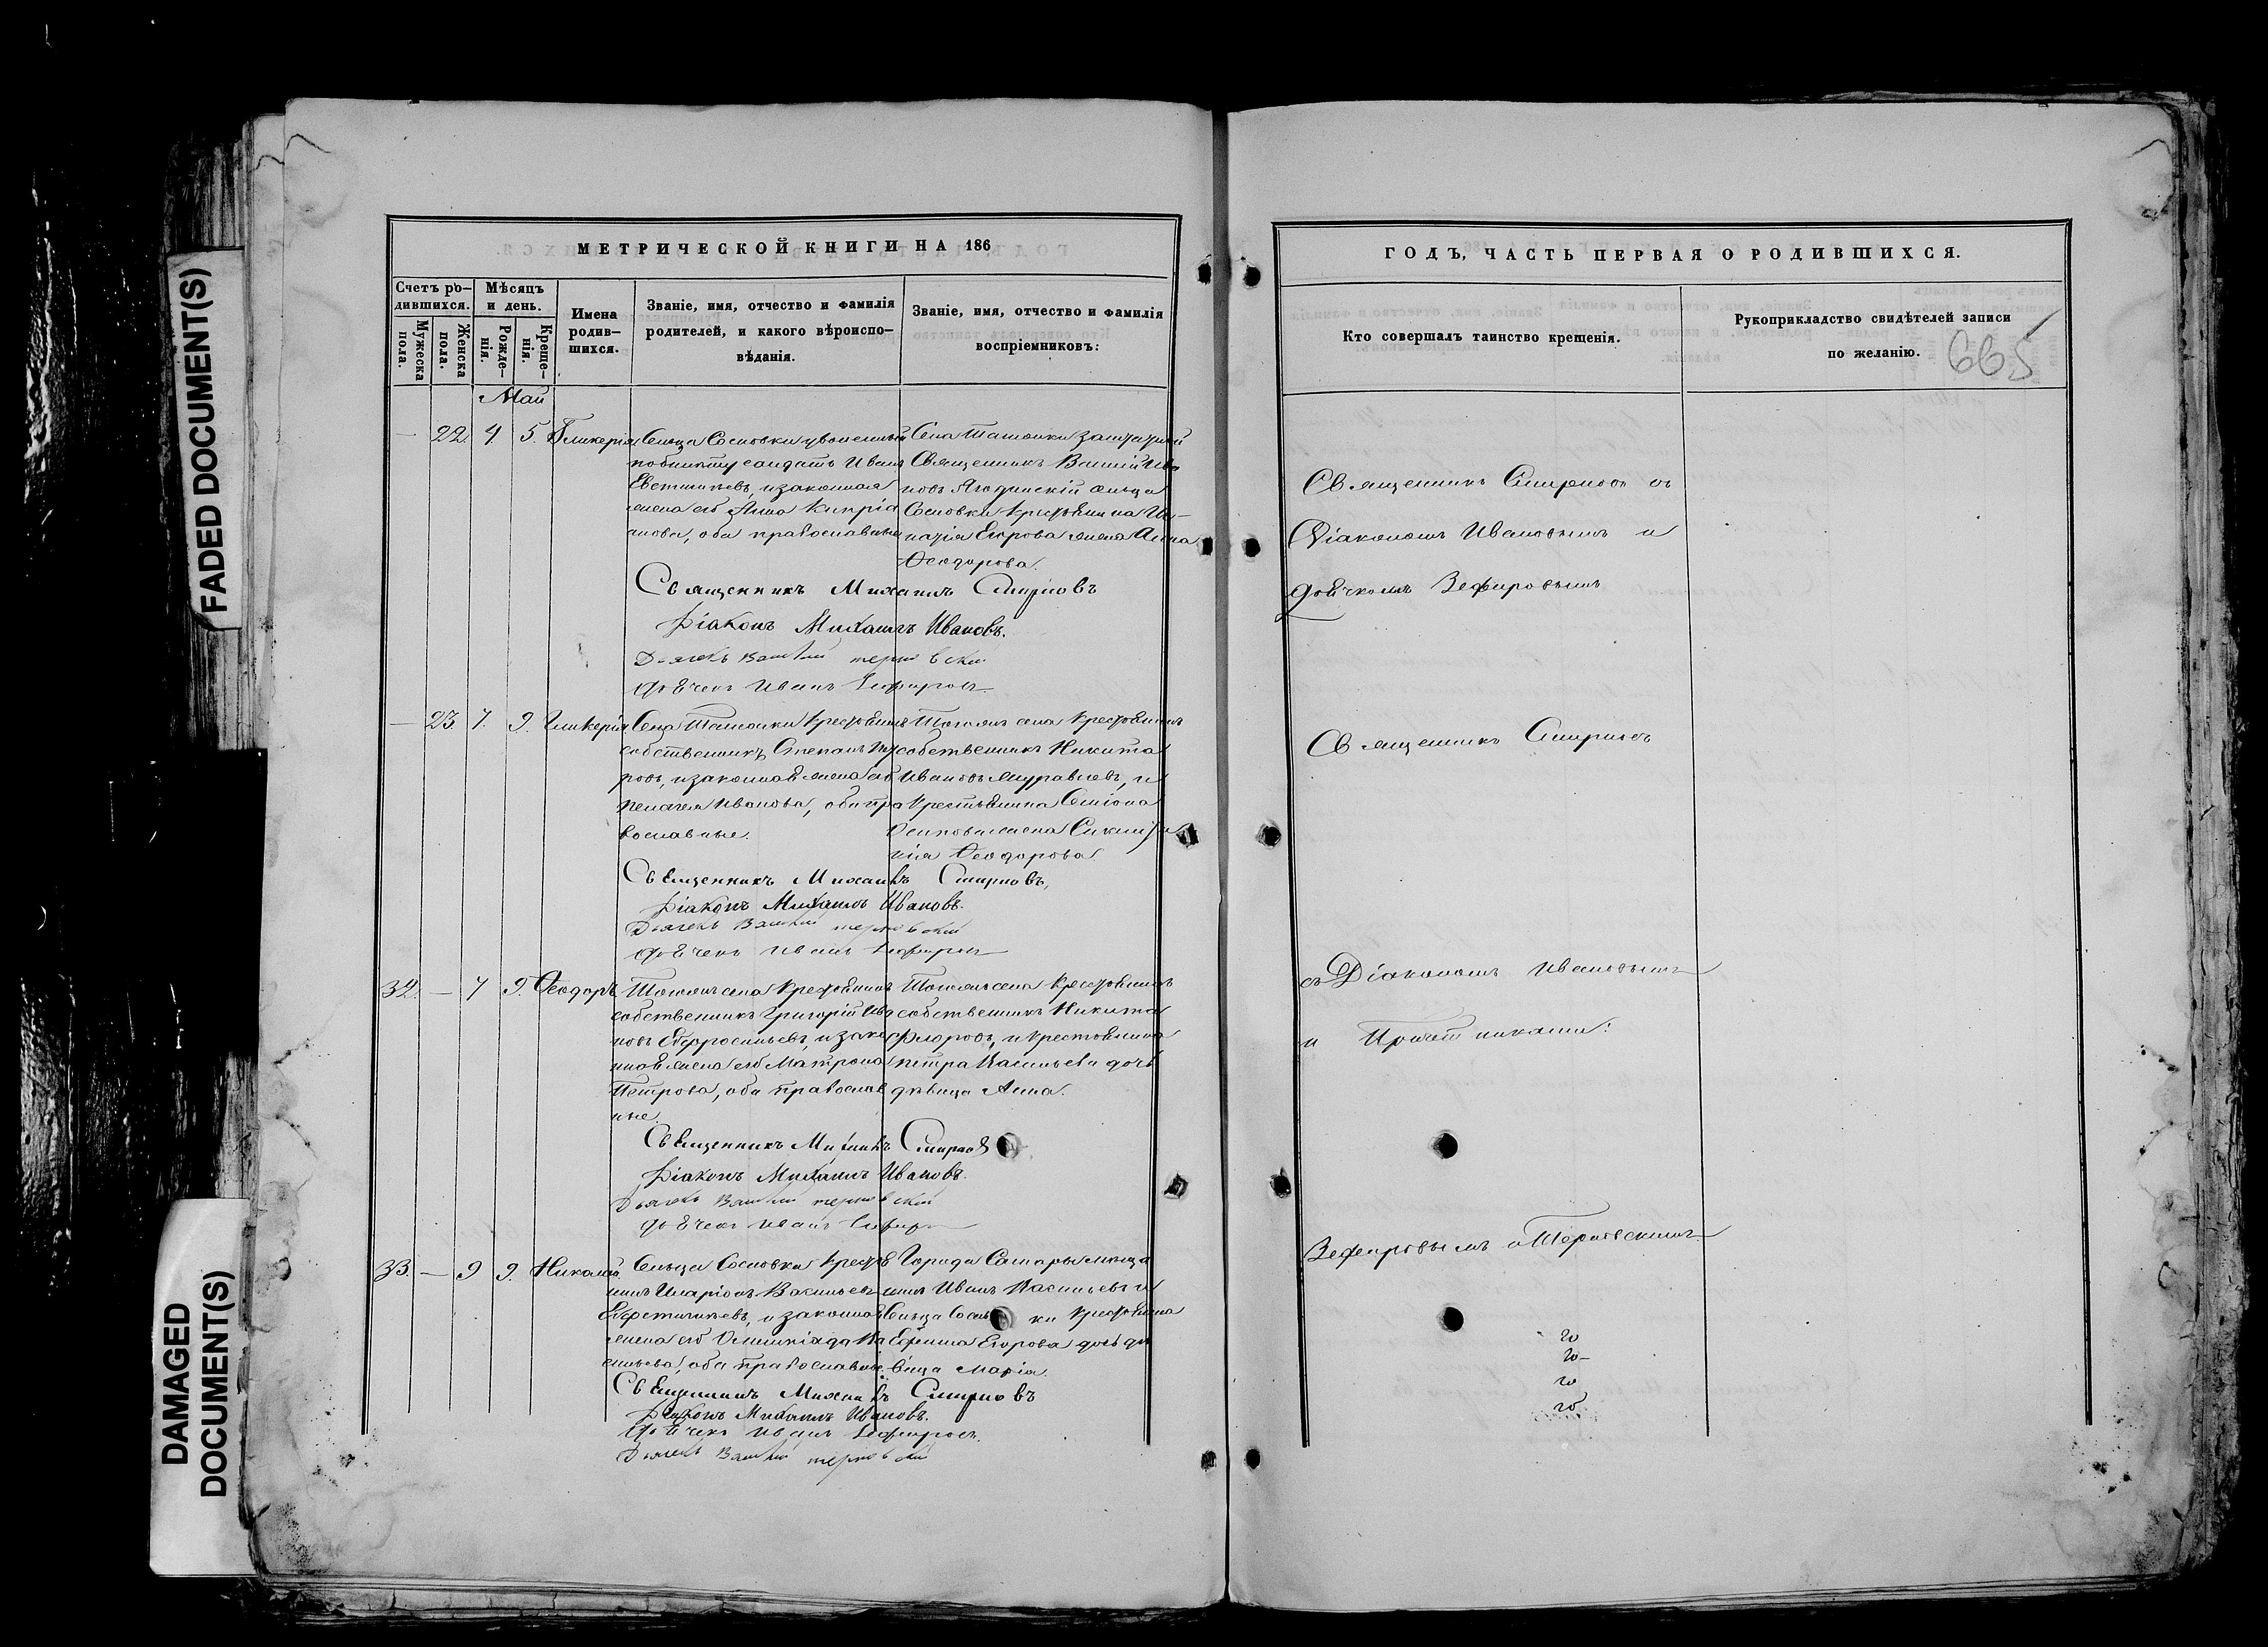 FADED DOCUMENT(S)
DAMAGED DOCUMENT(S)
МЕТРИЧЕСКОЙ КНИГИ НА 186
Счетъ ро-
дившихся.
Мужеска пола.
Женска пола.
Мѣсяцъ
и день.
Рожде-
нія.
Креще-
нія.
Имена
родив-
шихся.
Званіе, имя, отчество и фамилія
родителей, и какого вѣроиспо-
вѣданія.
Званіе, имя, отчество и фамилія
воспріемниковъ:
Май
— 22. 4 5. Гликерія
Сельца Сосновки уволенный
солдатъ Иванъ
Евстигнѣевъ, и законная
жена его Анна Кипрія
нова, оба православные
Села Ташолки заштатный
Священникъ Василій Ива
новъ Ягодинскій сельца
Сосновки крестьянина Иг-
натія Егорова жена Анна
Ѳеодорова.
Священникъ Михаилъ Смирновъ
Діаконъ Михаилъ Ивановъ.
Дьячекъ Василій Терновскій
Дьячекъ Иванъ Зефировъ
— 23. 7. 9. Гликерія
Села Ташолки крестьянинъ
собственникъ Степанъ
ровъ, и законная жена его
Пелагея Иванова, оба пра
вославные.
Тогожъ села крестьянинъ
собственникъ Никита
Ивановъ Муравлевъ, и
крестьянина Семіона
Осипова жена
нія Ѳеодорова
Священникъ Михаилъ Смирновъ,
Діаконъ Михаилъ Ивановъ.
Дьячекъ Василій Терновскій
Дьячекъ Иванъ Зефировъ
32. — 7 9. Ѳеодоръ
Тогожъ села крестьянинъ
собственникъ Григорій Ива
новъ и зако
нная жена его Матрона
Петрова, оба православ
ные.
Тогожъ села крестьянинъ
собственникъ Никита
Флоровъ, и крестьянина
Петра Васильева дочь
дѣвица Анна.
Священникъ Михаилъ Смирнов
Діаконъ Михаилъ Ивановъ.
Дьячекъ Василій Терновскій
Дьячекъ Иванъ Зефир
33. — 9 9. Николай
Сельца Сосновки крестья
нинъ Иларіонъ Васильевъ
Евстигнѣевъ, и законная
жена его Олимпіяда Ва
сильева, оба православные
Города Самары мѣща
нинъ Иванъ Васильевъ и
сельца Сосно ки крестьянина
Ефима Егорова дочь дѣ
вица Марія.
Священникъ Михаилъ Смирновъ
Діаконъ Михаилъ Ивановъ.
Дьячекъ Иванъ Зефировъ.
Дьячекъ Василій Терновскій
ГОДЪ, ЧАСТЬ ПЕРВАЯ О РОДИВШИХСЯ.
Кто совершалъ таинство крещенія.
Рукоприкладство свидѣтелей записи
по желанію.
665
Священникъ Смирновъ съ
Діакономъ Ивановымъ и
дьячкомъ Зефировымъ
Священникъ Смирновъ
съ Діакономъ Ивановымъ
и Причетниками:
Зефировымъ и Терновскимъ